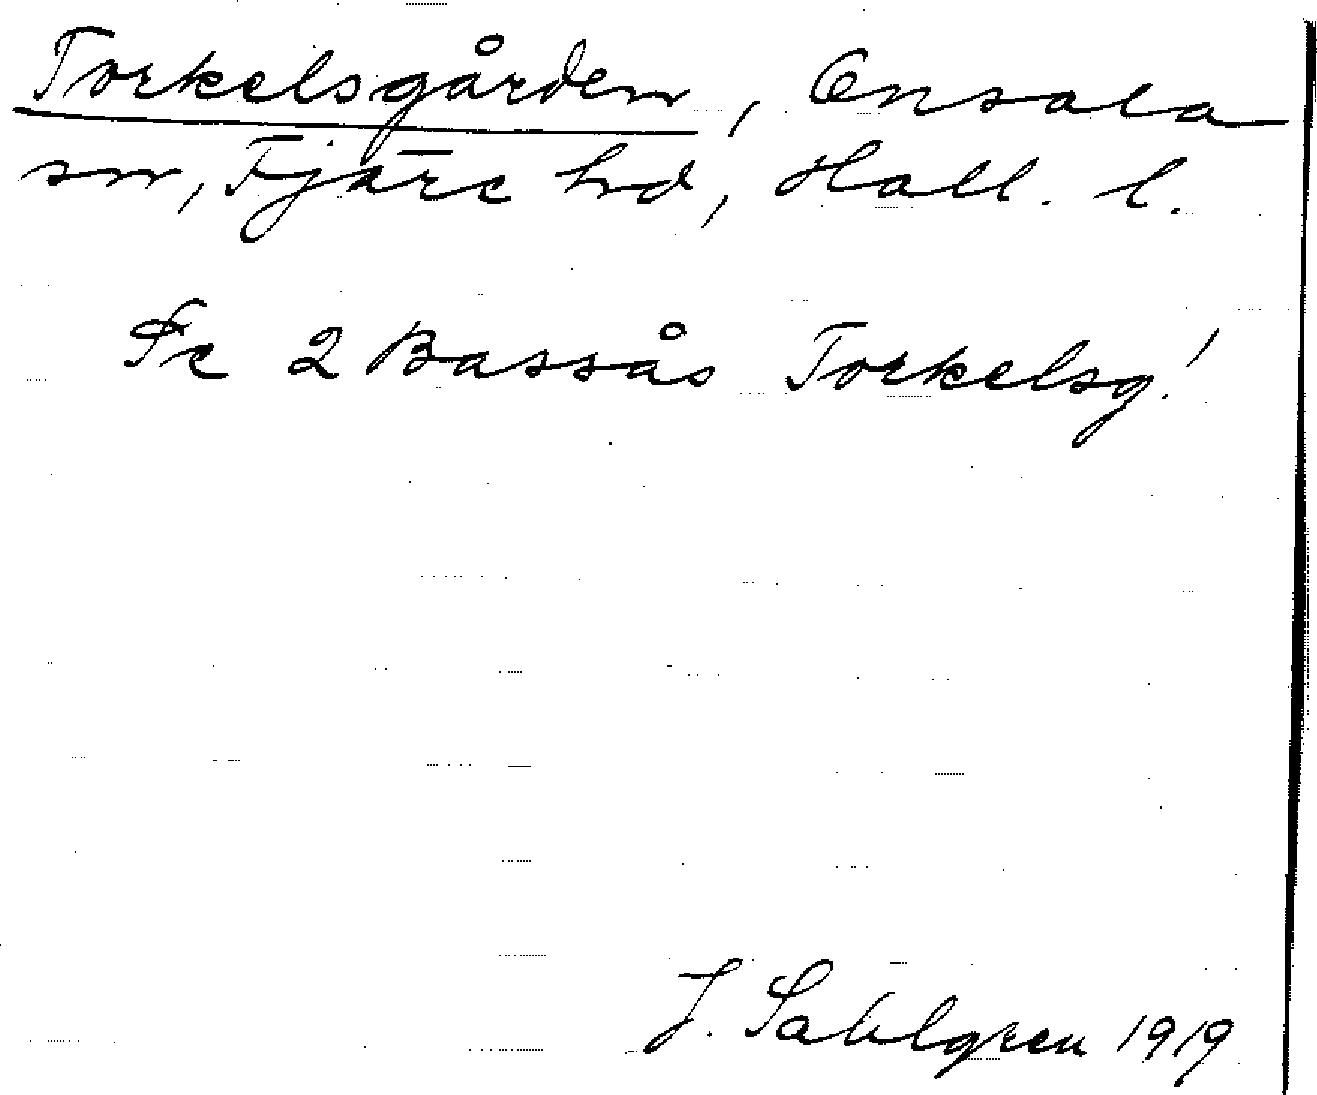 Torkelsgården, Onsala
sn, Fjäre hd, Hall. l.
Se 2 Bassås Torkelsg.!
J. Sahlgren 1919